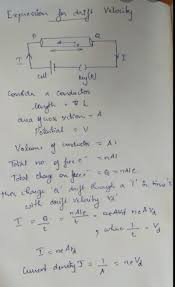 Expression for drift Velocity
P Q
I I
cell key(k)
Consider a conductor
length = L
area of cross section = A
Potential = V
Volume of conductor = Al
Total no of free e⁻ = nAl
Total charge on free e⁻ = Q = nAle
then charge 'Q' drift through a 'l' in time 't'
with drift velocity 'Vd'
I = Q/t = nAle/t = neAVd
, which l/t = Vd
I = neAVd
Current density J = I/A = neVd